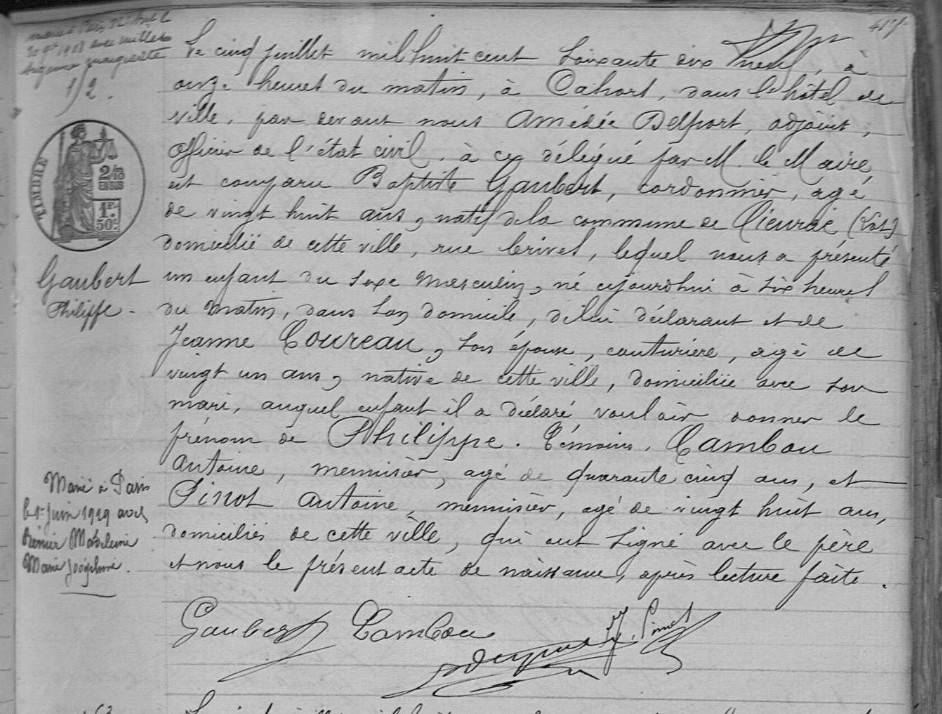 417
Le cinq juillet mil huit cent soixante dix neuf, à
onze heures du matin, à Cahors, dans l'hôtel de
ville, par devant nous Amédée Delport, adjoint,
officier de l'état civil, à ce délégué par M. le Maire,
est comparu Baptiste Gaubert, cordonnier, âgé
de vingt huit ans, natif de la commune de Cieurac (Lot)
domicilié de cette ville, rue lequel nous a présenté
un enfant du sexe masculin, né aujourd'hui à six heures
du matin, dans son domicile, de lui déclarant et de
Jeanne Coureau, son épouse, couturière, agé de
vingt un ans, native de cette ville, domiciliée avec son
mari, auquel enfant il a déclaré vouloir donner le
prénom de Philippe. Témoins, Cambou
Antoine, menuisier, agé de quarante cinq ans, et
Pinot Antoine, menuisier, agé de vingt huit ans,
domiciliés de cette ville, qui ont signé avec le père
et nous le présent acte de naissance, après lecture faite.
Gaubert Cambou
Pinot
1/2.
TIMBRE
2/10
EN SUS
1F.
50c.
Gaubert
Philippe.
Marié à Paris
le 1er juin 1929 avec
Madeleine
Marie Joséphine.